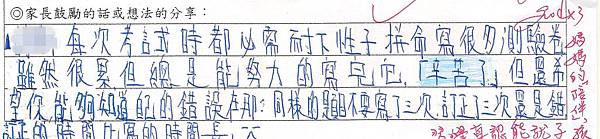 ◎家長鼓勵的話或想法的分享：
good x3
每次考試時都必需耐下性子拼命寫很多測驗卷
雖然很累但總是能努力的寫完它,「辛苦了」但還希
望你能夠知道自己的錯誤在那?同樣的題目不要寫了三次,訂正了三次還是錯
訂正的時間比寫的時間長,
媽媽的陪伴
孩